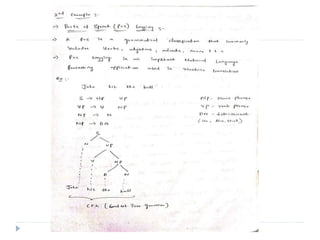 2nd Example :-
→ Parts of Speech (PoS) tagging :-
→ A PoS is a grammatical classification that commonly
includes verbs, adjectives, adverbs, nouns e t c
→ PoS tagging is an important Natural Language
Processing application used in machine translation
Eg:-
John hit the ball
S → NP VP
VP → V NP
NP → N
NP → D N
NP - noun phrase
VP - verb phrase
DN - determinant
S
N VP
V NP
D N
John hit the ball
CFG : (Context Free Grammar)